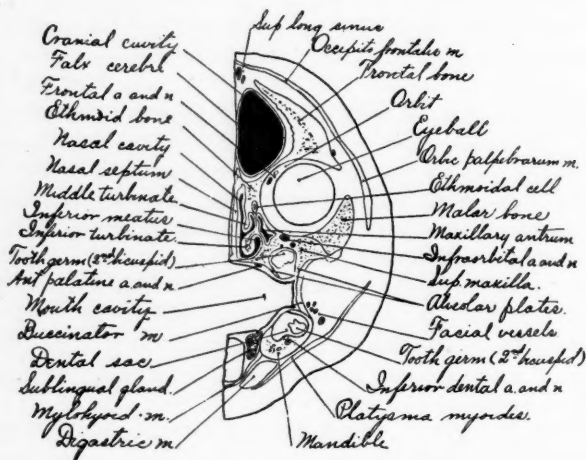 Sup long sinus
Cranial cavity
Falx cerebri
Frontal a and n
Ethmoid bone
Nasal cavity
Nasal septum
Middle turbinate
Inferior meatus
Inferior turbinate.
Tooth germ (2nd bicuspid)
Ant palatine a. and n
Mouth cavity
Buccinator m
Dental sac
Sublingual gland.
Mylohyoid m.
Digastric m
Occipito frontalis m
Frontal bone
Orbit
Eyeball
Orbic palpebrarum m.
Ethmoidal cell
Malar bone
Maxillary antrum
Infraorbital a and n
Sup. maxilla.
Alveolar plates.
Facial vessels
Tooth germ (2nd bicuspid)
Inferior dental a. and n
Platysma myoides.
Mandible